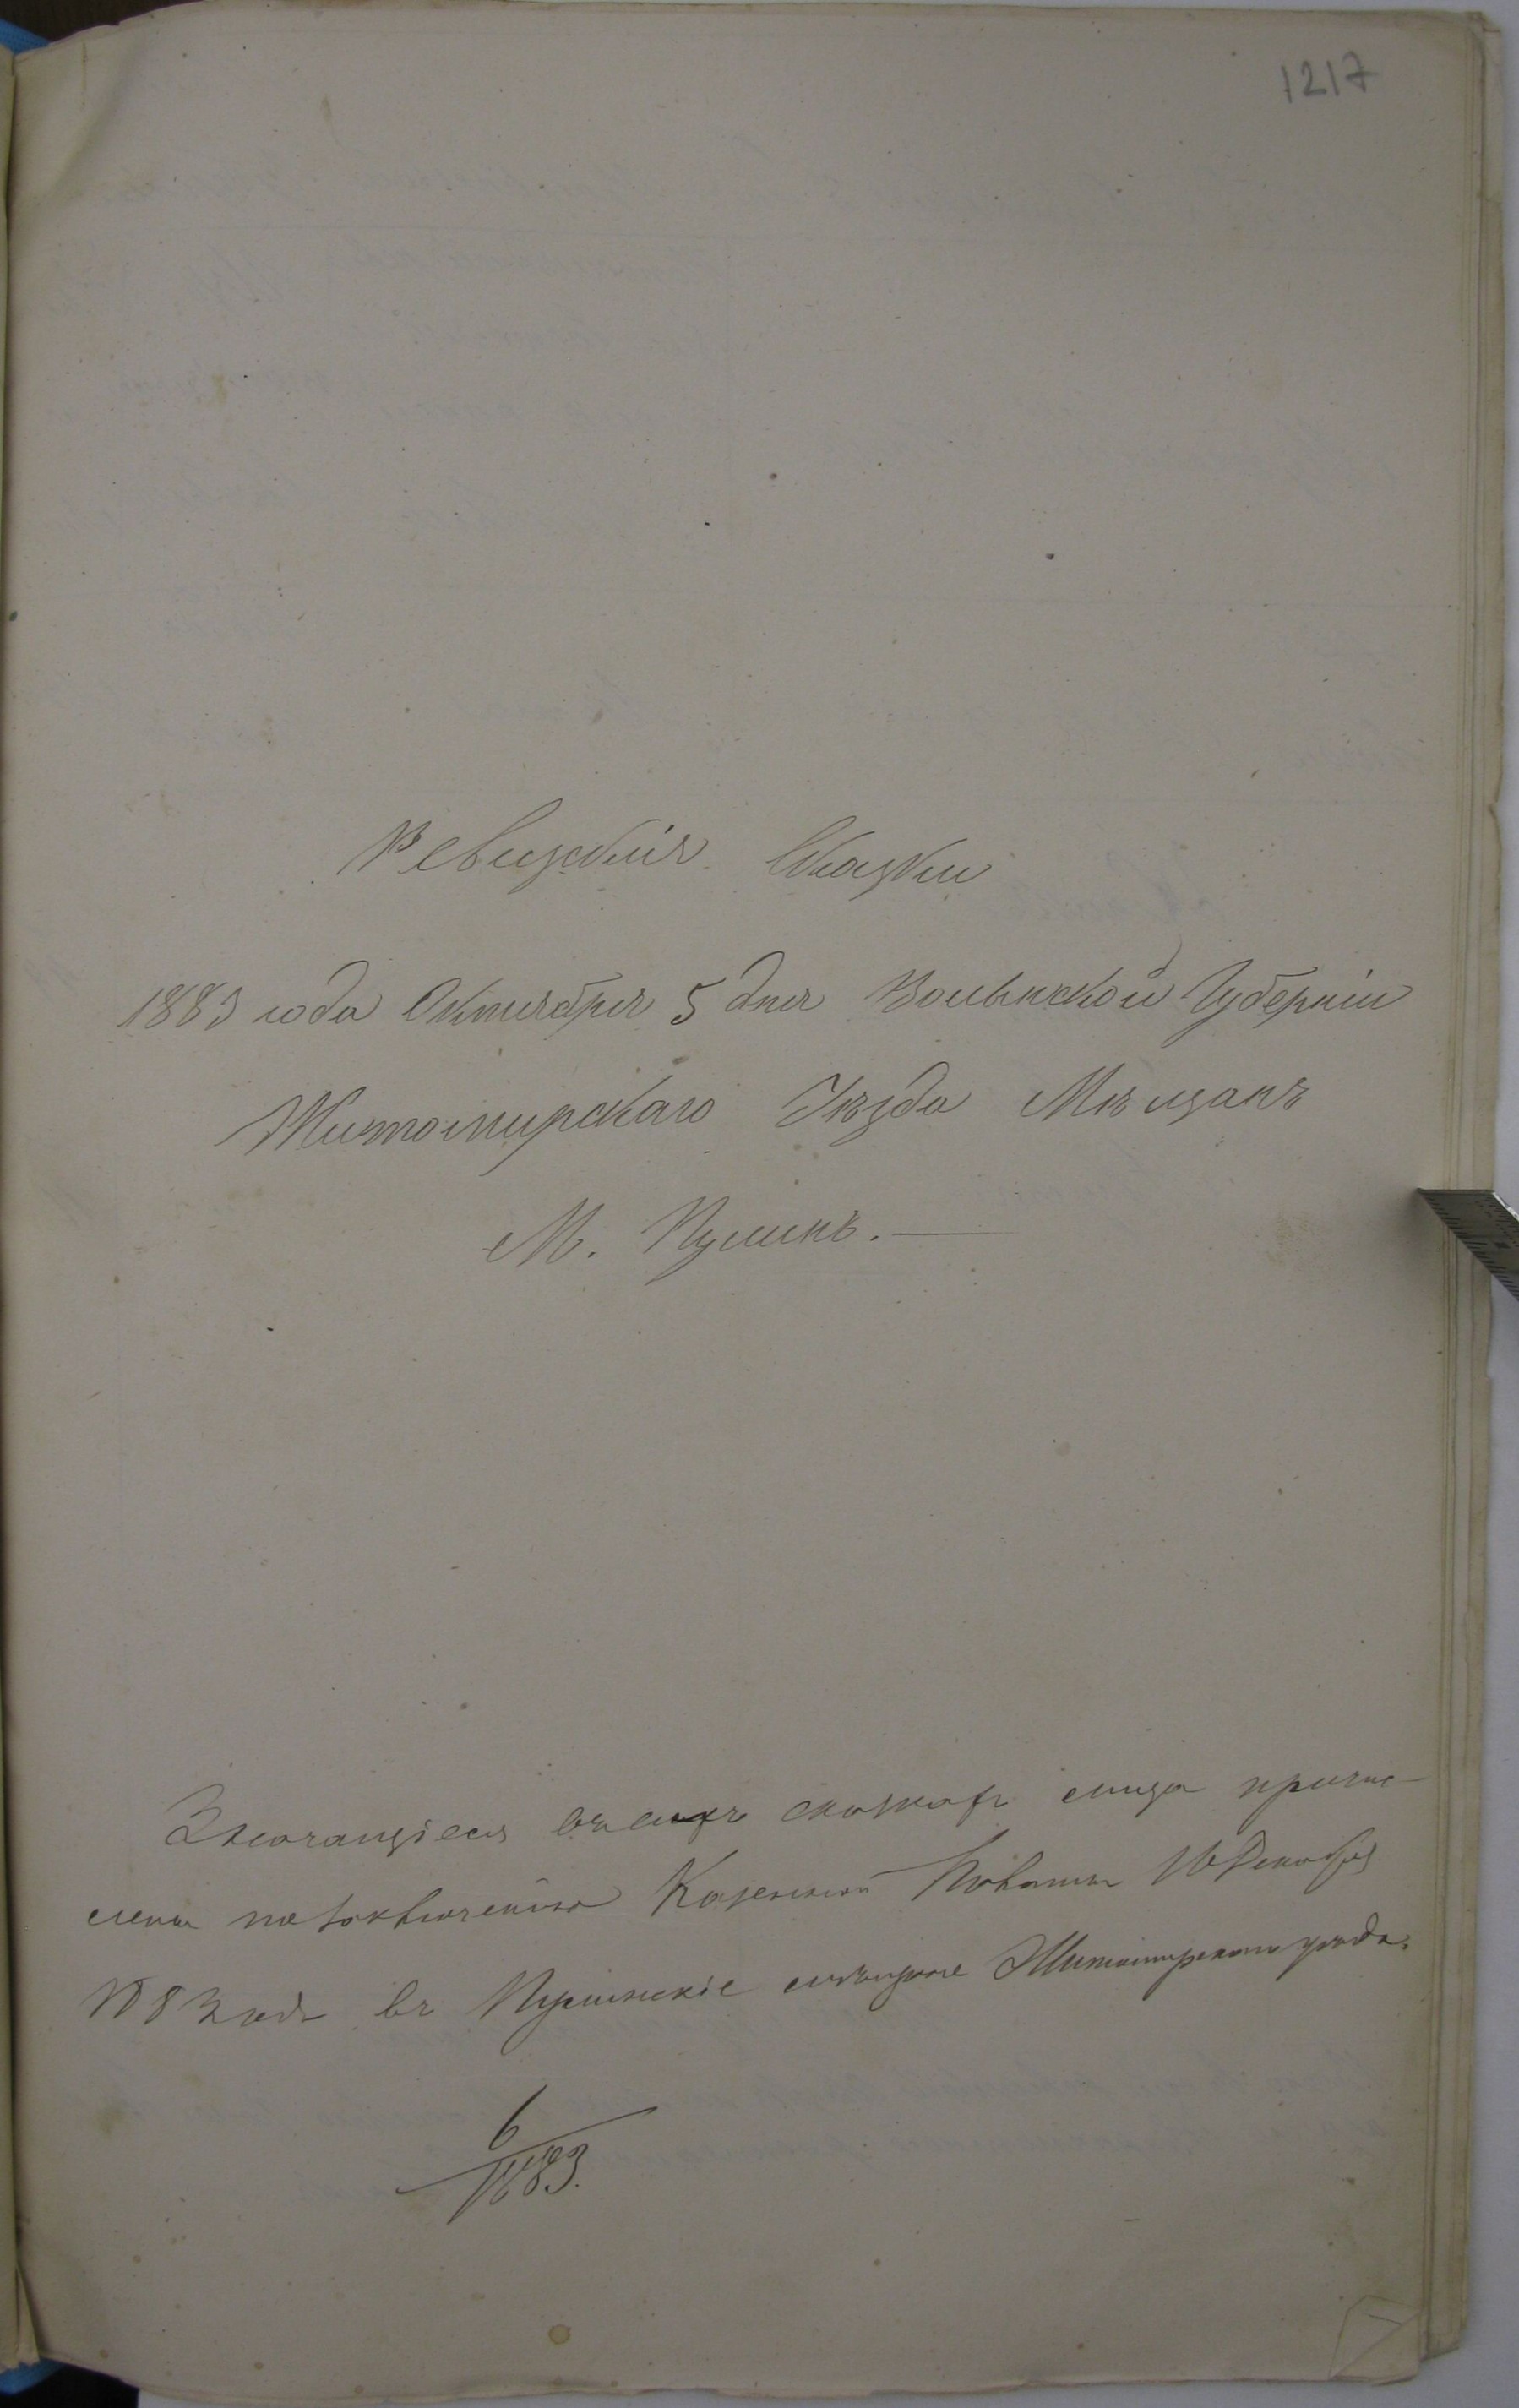 1217
Ревизскія Сказки
1883 года Октября 5 дня Волынской Губерніи
Житомирскаго Уѣзда Мѣщанъ
М. Пулинъ.—
Значащіеся въ сихъ сказкахъ лица причис-
лены по заключенію Казенной Палаты 10 Декабря
1883 года въ Пулинскіе мѣщане Житомирскаго уѣзда.
6
1883.